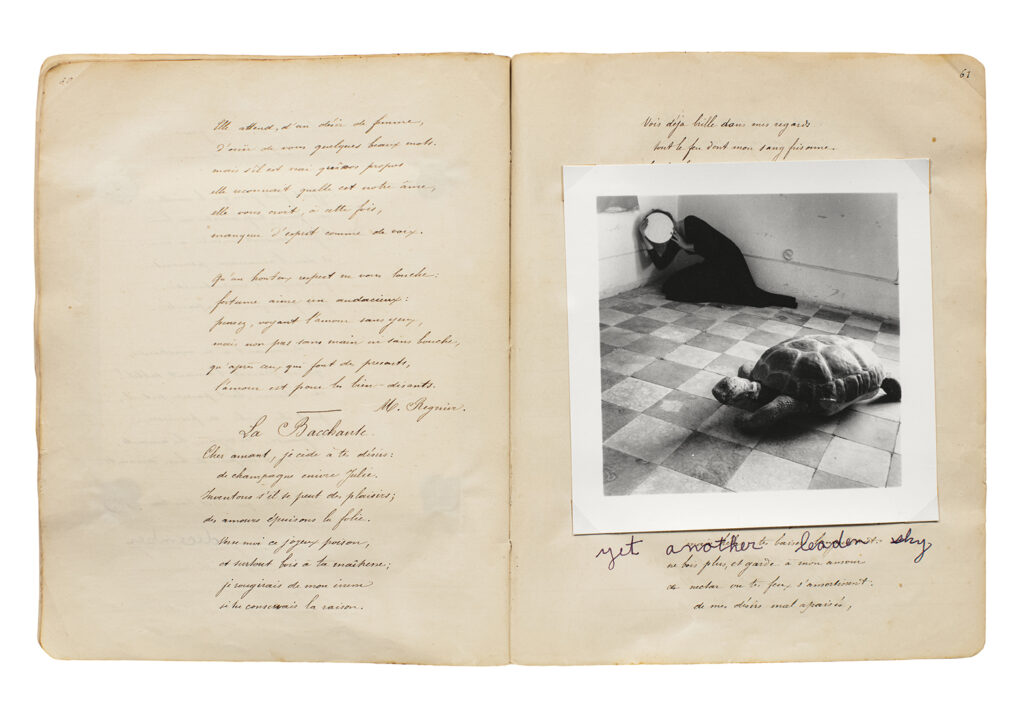 60
Elle attend, d'un désir de femme,
D'ouïr de vous quelques beaux mots.
mais s'il est vrai qu'à nos propos
elle reconnait quelle est notre âme,
elle vous croit, à cette fois,
manquer d'esprit comme de voix.
Qu'un honteux respect ne vous touche:
fortune aime un audacieux:
pensez, voyant l'amour sans yeux,
mais non pas sans main ni sans bouche,
qu'après ceux qui font des présents,
l'amour est pour les bien-disants.
M. Regnier.
La Bacchante.
Cher amant, je cède à tes désirs:
de champagne enivre Julie.
Inventons s'il se peut des plaisirs;
des amours épuisons la folie.
Verse moi ce joyeux poison,
et surtout bois à ta maîtresse;
je rougirais de mon ivresse
si tu conservais la raison.
61
Vois déjà brille dans mes regards
tout le feu dont mon sang frisonne.
yet another leaden sky
ne bois plus, et garde à mon amour
ce nectar où tes feux s'amortissent:
de mes désirs mal apaisés,